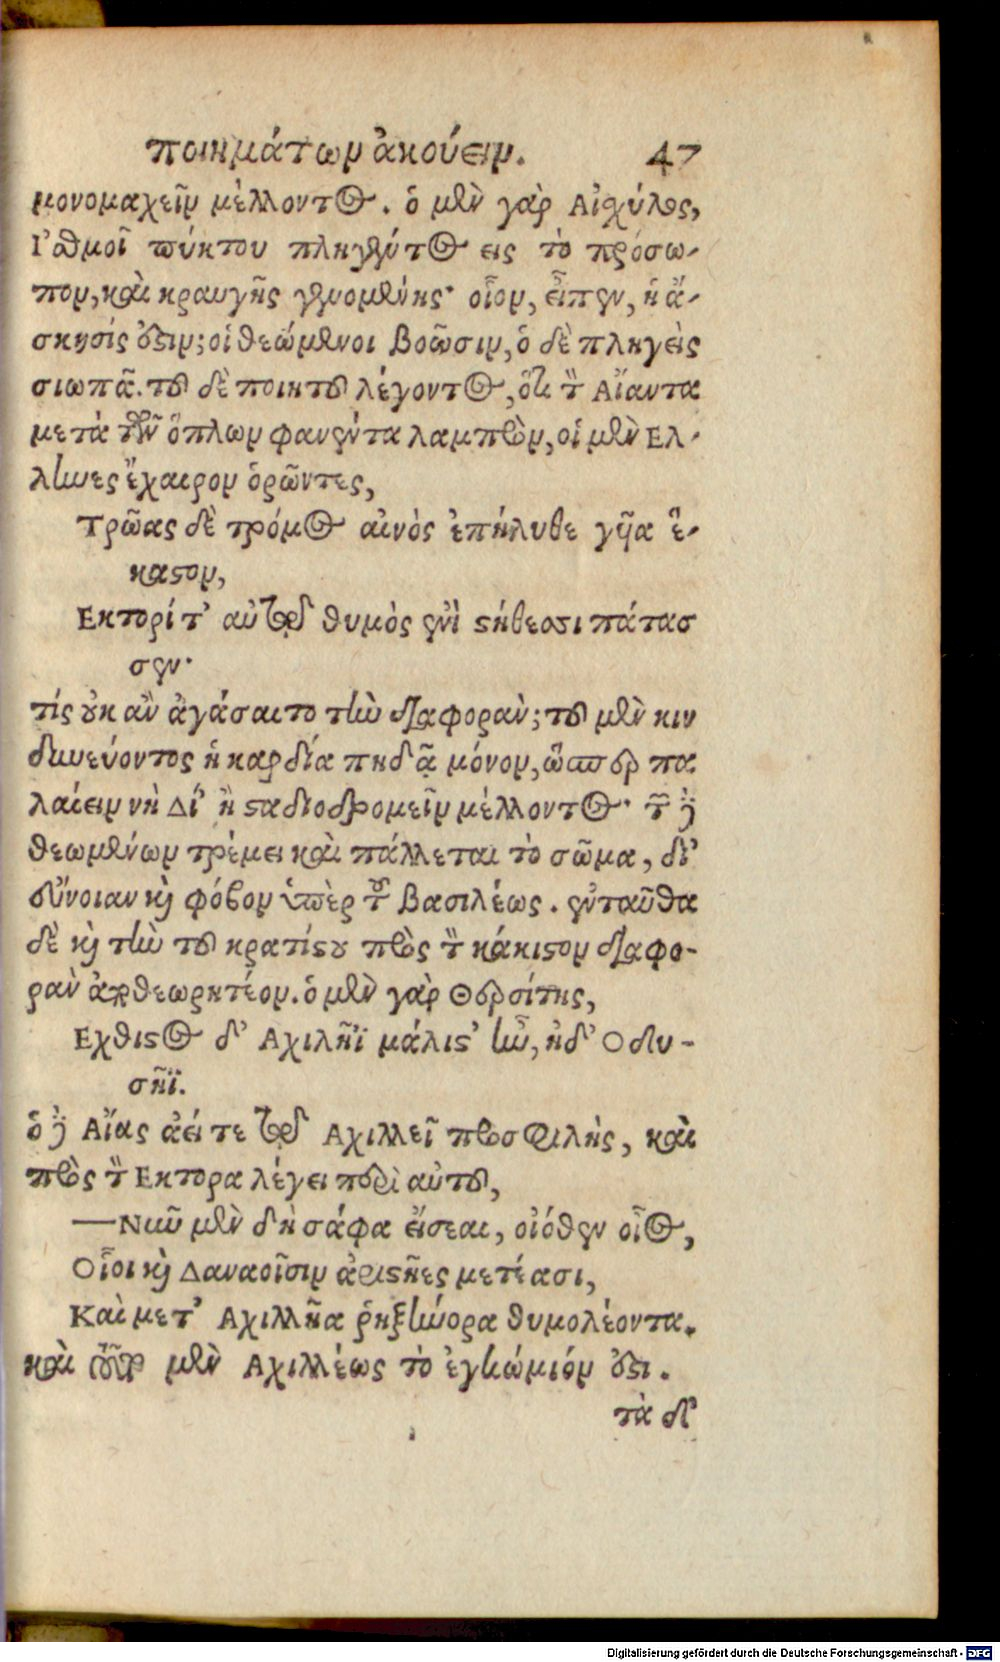 ποιημάτων ἀκούειν. 47
μονομαχεῖν μέλλοντος. ὁ μὲν γὰρ Αἰσχύλος,
Ἰσθμοῖ πύκτου πληγέντος εἰς τὸ πρόσω-
πον, καὶ κραυγῆς γενομένης· οἷον, εἶπεν, ἡ ἄ-
σκησίς ἐστιν; οἱ θεώμενοι βοῶσιν, ὁ δὲ πληγεὶς
σιωπᾷ. τοῦ δὲ ποιητοῦ λέγοντος, ὅτι τὸν Αἴαντα
μετὰ τῶν ὅπλων φανέντα λαμπρὸν, οἱ μὲν Ελ-
ληνες ἔχαιρον ὁρῶντες,
Τρῶας δὲ τρόμος αἰνὸς ἐπήλυθε γῦῖα ἕ-
καστον,
Εκτορί τ' αὐτῷ θυμὸς ἐνὶ στήθεσσι πάτασ
σεν·
τίς οὐκ ἂν ἀγάσαιτο τὴν διαφορὰν; τοῦ μὲν κιν
δυνεύοντος ἡ καρδία πηδᾷ μόνον, ὥσπερ πα
λαίειν νὴ Δί' ἢ σταδιοδρομεῖν μέλλοντος· τῶν δὲ
θεωμένων τρέμει καὶ πάλλεται τὸ σῶμα, δι'
εὔνοιαν καὶ φόβον ὑπὲρ τοῦ βασιλέως. ἐνταῦθα
δὲ καὶ τὴν τοῦ κρατίστου πρὸς τὸν κάκιστον διαφο-
ρὰν ἀποθεωρητέον. ὁ μὲν γὰρ Θερσίτης,
Εχθιστος δ' Αχιλῆϊ μάλιστ' ἦν, ἠδ' Οδυ-
σῆϊ.
ὁ δὲ Αἴας ἀεί τε τῷ Αχιλλεῖ προσφιλὴς, καὶ
πρὸς τὸν Εκτορα λέγει περὶ αὐτοῦ,
—Νῦν μὲν δὴ σάφα εἴσεαι, οἰόθεν οἶος,
Οἷοι καὶ Δαναοῖσιν ἀριστῆες μετέασι,
Καὶ μετ' Αχιλλῆα ῥηξήνορα θυμολέοντα.
καὶ τοῦτο μὲν Αχιλλέως τὸ ἐγκώμιόν ἐστι.
τὰ δ'
Digitalisierung gefördert durch die Deutsche Forschungsgemeinschaft - DFG